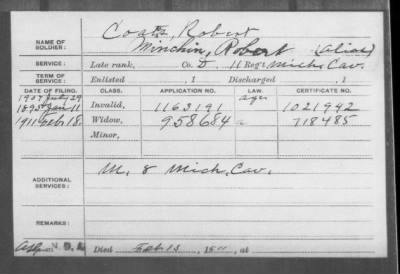 Coats, Robert
NAME OF SOLDIER: Minchin, Robert (Alias)
SERVICE: Late rank, Co. D 11 Reg't Mich. Cav.
TERM OF SERVICE: Enlisted , 1 Discharged , 1
DATE OF FILING. CLASS. APPLICATION NO. LAW. CERTIFICATE NO.
1907 July 29 age
1895 Jan 11 Invalid, 1163191 1021942
1911 Feb 18. Widow, 958684 718485
Minor,
ADDITIONAL SERVICES: M. 8 Mich. Cav.
REMARKS:
N. D. Died Feb 13, 1911, at